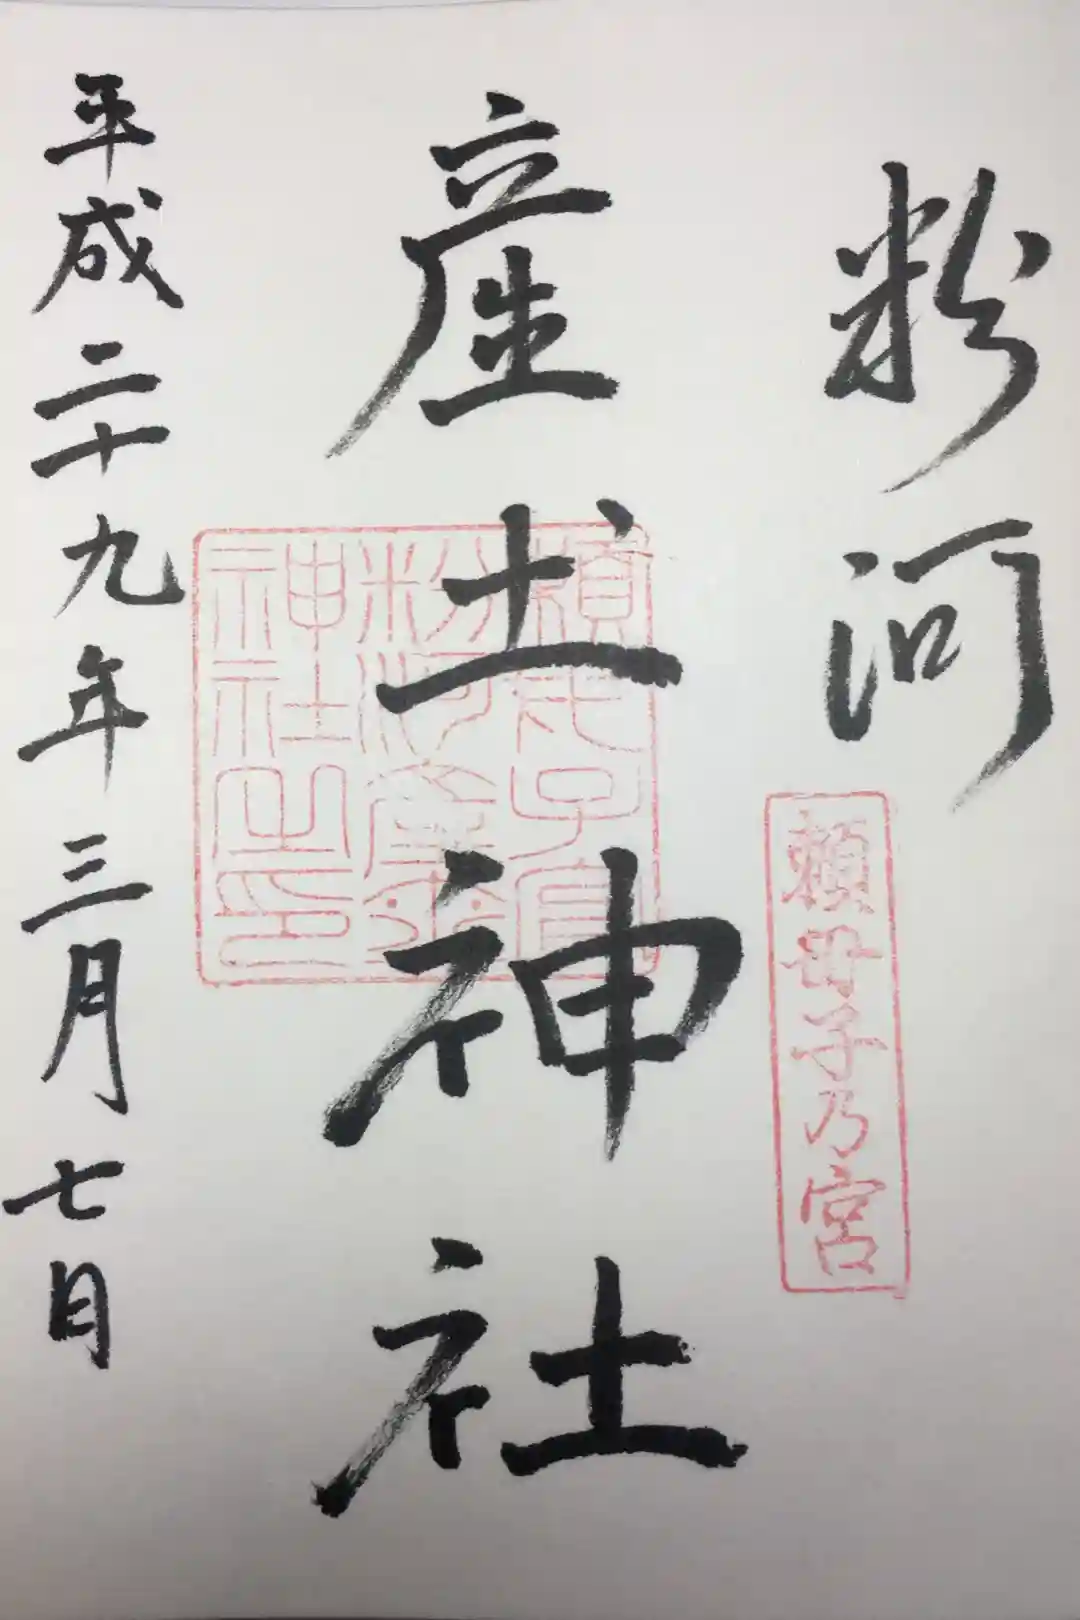 粉河
頼母子乃宮
産土神社
頼母子宮
粉河産土
神社之印
平成二十九年三月七日